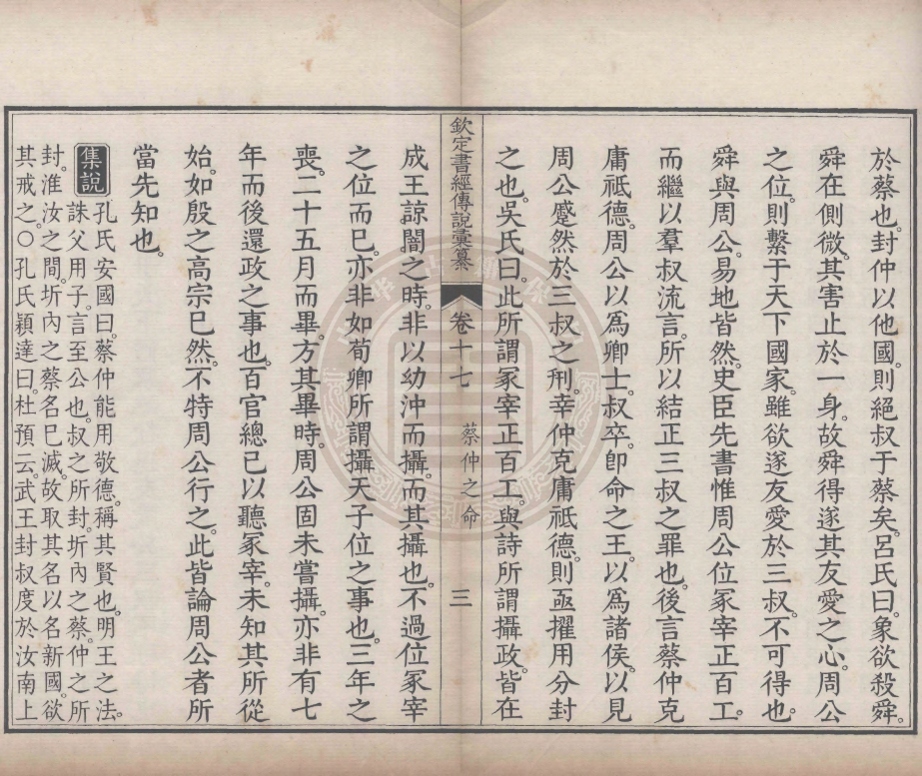 於蔡也。封仲以他國。則絕叔于蔡矣。呂氏曰。象欲殺舜。
舜在側微。其害止於一身。故舜得遂其友愛之心。周公
之位。則繫于天下國家。雖欲遂友愛於三叔。不可得也。
舜與周公。易地皆然。史臣先書惟周公位冢宰正百工。
而繼以羣叔流言。所以結正三叔之罪也。後言蔡仲克
庸祗德。周公以爲卿士。叔卒。卽命之王。以爲諸侯。以見
周公蹙然於三叔之刑。幸仲克庸祗德。則亟擢用分封
之也。吳氏曰。此所謂冢宰正百工。與詩所謂攝政。皆在
欽定書經傳說彙纂 卷十七 蔡仲之命 三
成王諒闇之時。非以幼沖而攝。而其攝也。不過位冢宰
之位而已。亦非如荀卿所謂攝天子位之事也。三年之
喪。二十五月而畢。方其畢時。周公固未嘗攝。亦非有七
年而後還政之事也。百官總已以聽冢宰。未知其所從
始。如殷之高宗已然。不特周公行之。此皆論周公者所
當先知也。
集說 孔氏安國曰。蔡仲能用敬德。稱其賢也。明王之法。
誅父用子。言至公也。叔之所封。圻內之蔡。仲之所
封。淮汝之閒。圻內之蔡名已滅。故取其名以名新國。欲
其戒之。○孔氏穎達曰。杜預云。武王封叔度於汝南上